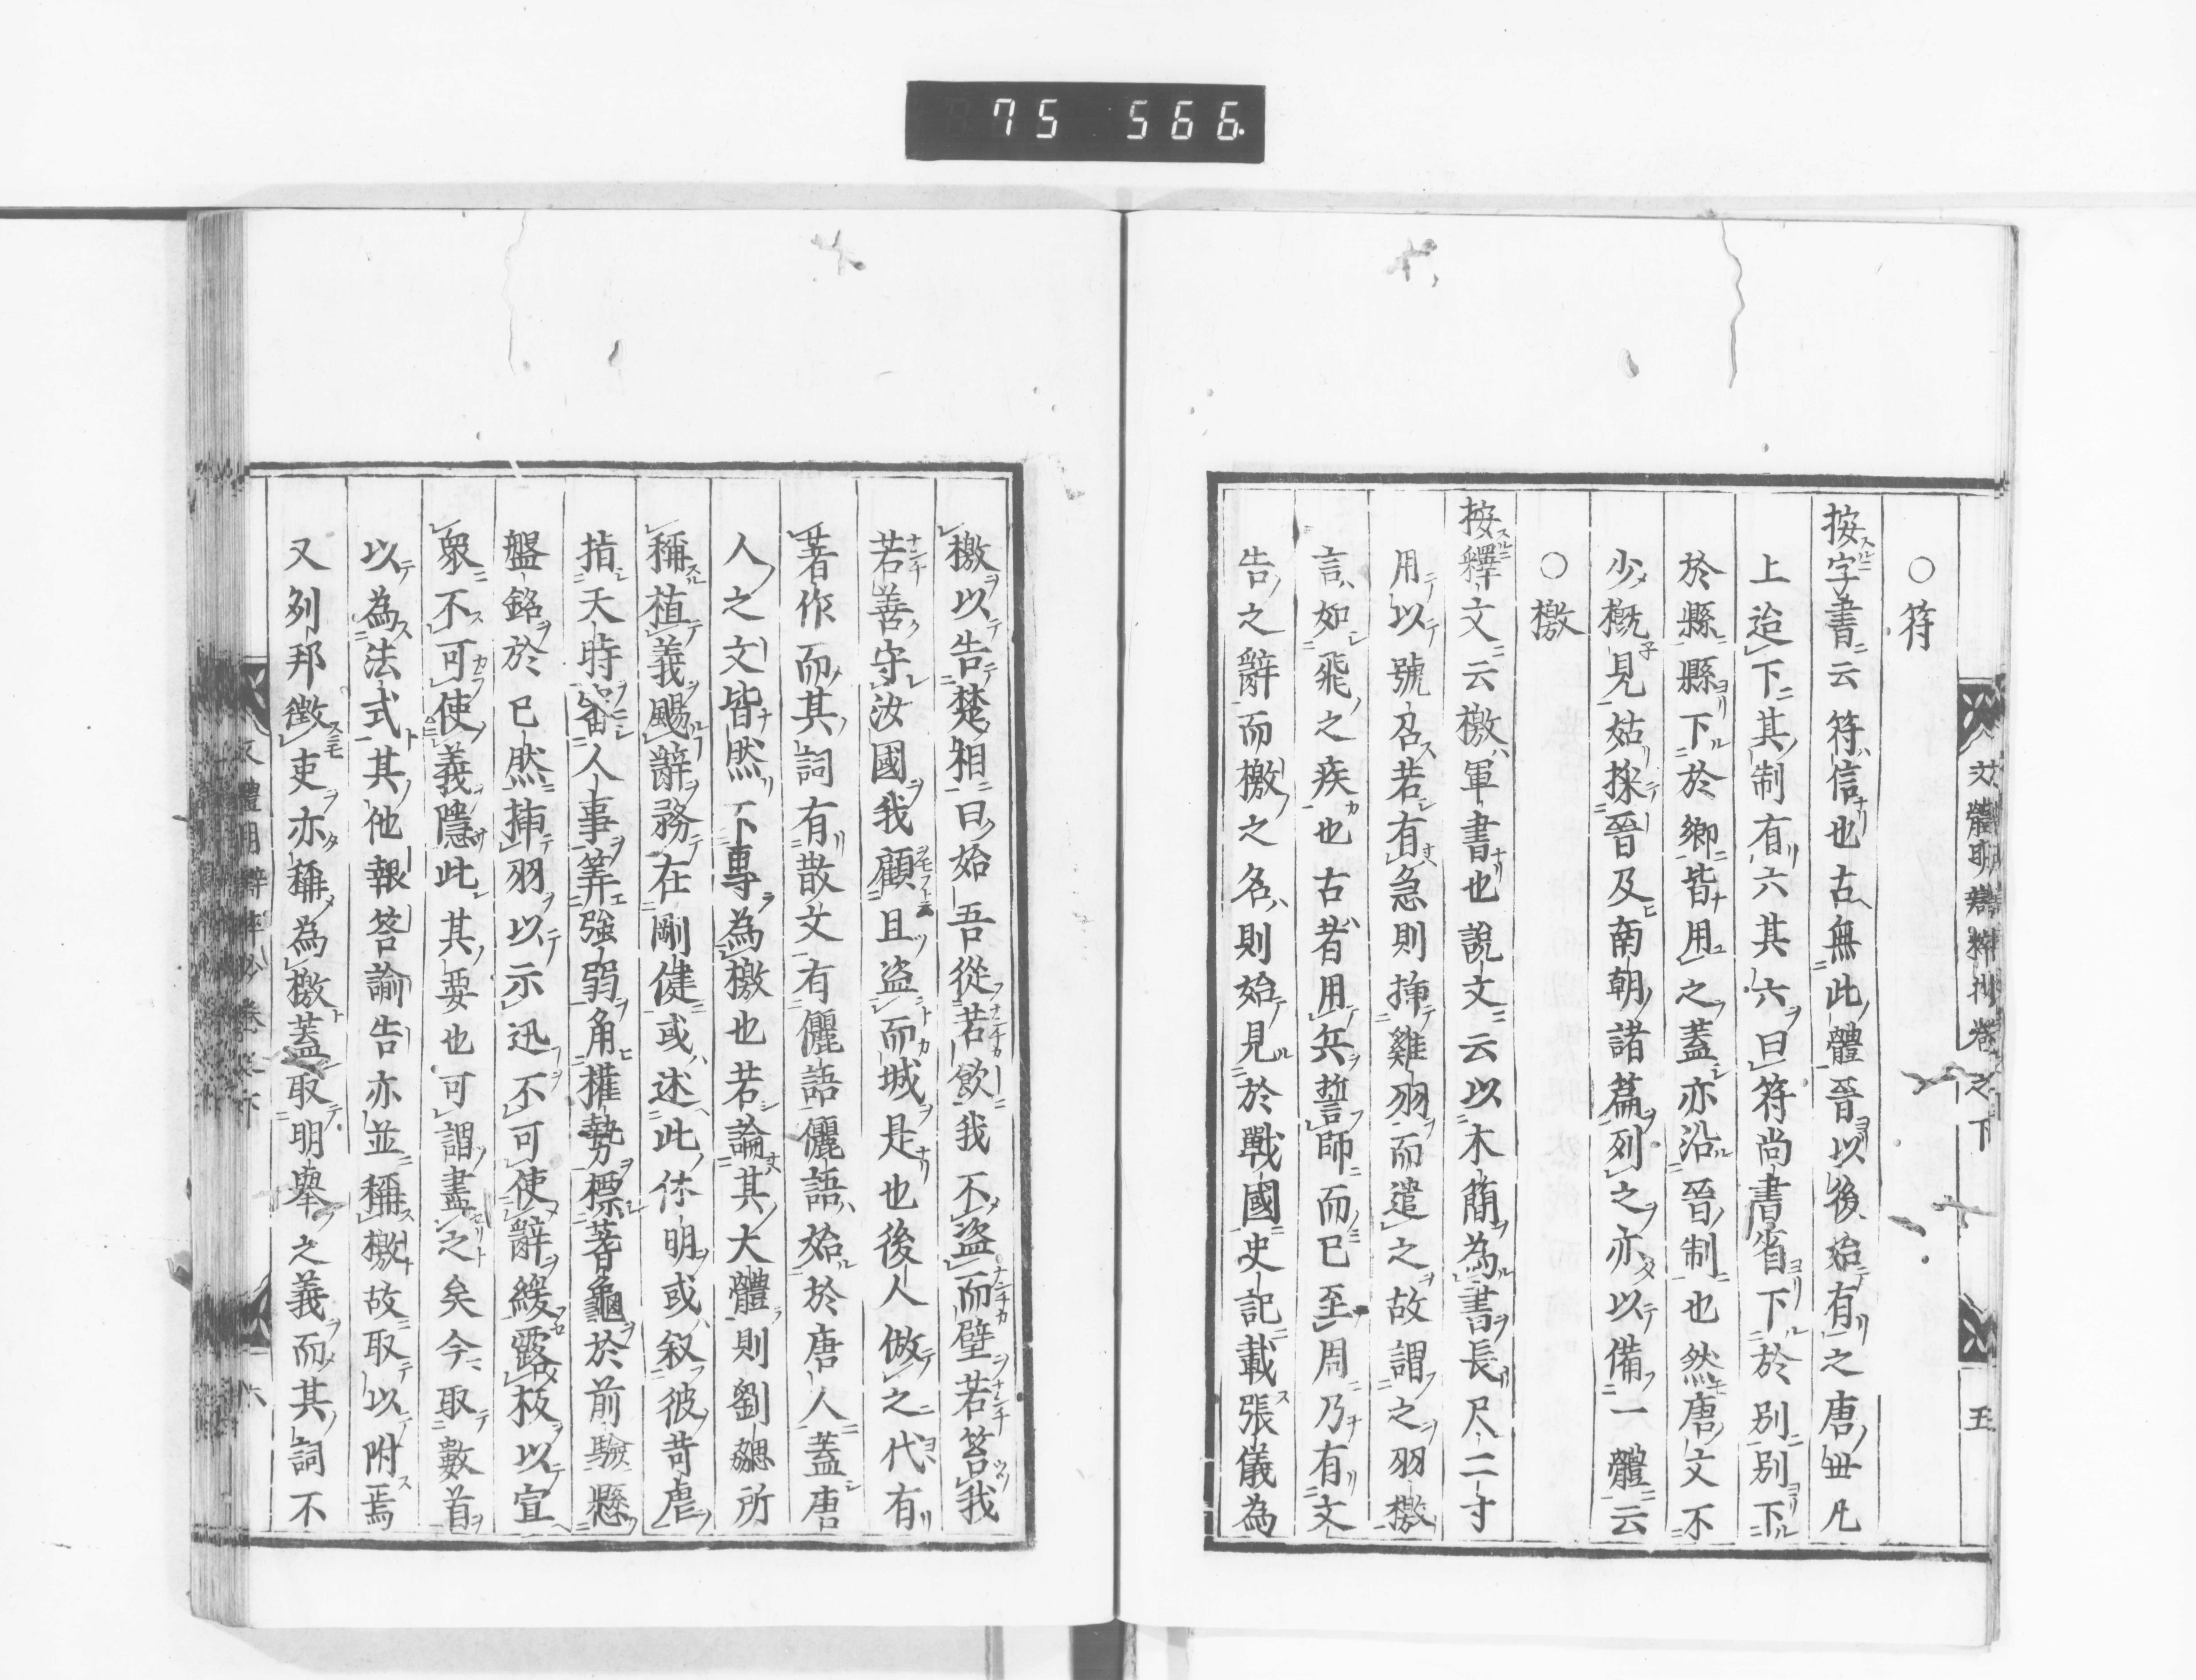 75 566
文體明辯粹抄卷之下 五
○符
按字書云符信也古無此體晉以後始有之唐世凡
上迨下其制有六其六曰符尚書省下於別別下
於縣縣下於鄉皆用之蓋亦沿晉制也然唐文不
少概見姑採晉及南朝諸篇列之亦以備一體云
○檄
按釋文云檄軍書也說文云以木簡為書長尺二寸
用以號召若有急則揷雞羽而遣之故謂之羽檄
言如飛之疾也古者用兵誓師而已至周乃有文
告之辭而檄之名則始見於戰國史記載張儀為
檄以告楚相曰始吾從若飲我不盜而壁若笞我
若善守汝國我顧且盜而城是也後人倣之代有
著作而其詞有散文有儷語儷語始於唐人蓋唐
人之文皆然不專為檄也若論其大體則劉勰所
稱植義颺辭務在剛健或述此休明或叙彼苛虐
指天時審人事筭強弱角權勢標蓍龜於前驗懸
盤銘於已然揷羽以示迅不可使辭緩露板以宣
衆不可使義隱此其要也可謂盡之矣今取數首
以為法式其他報答諭告亦並稱檄故取以附焉
又列邦徵吏亦稱為檄蓋取明舉之義而其詞不